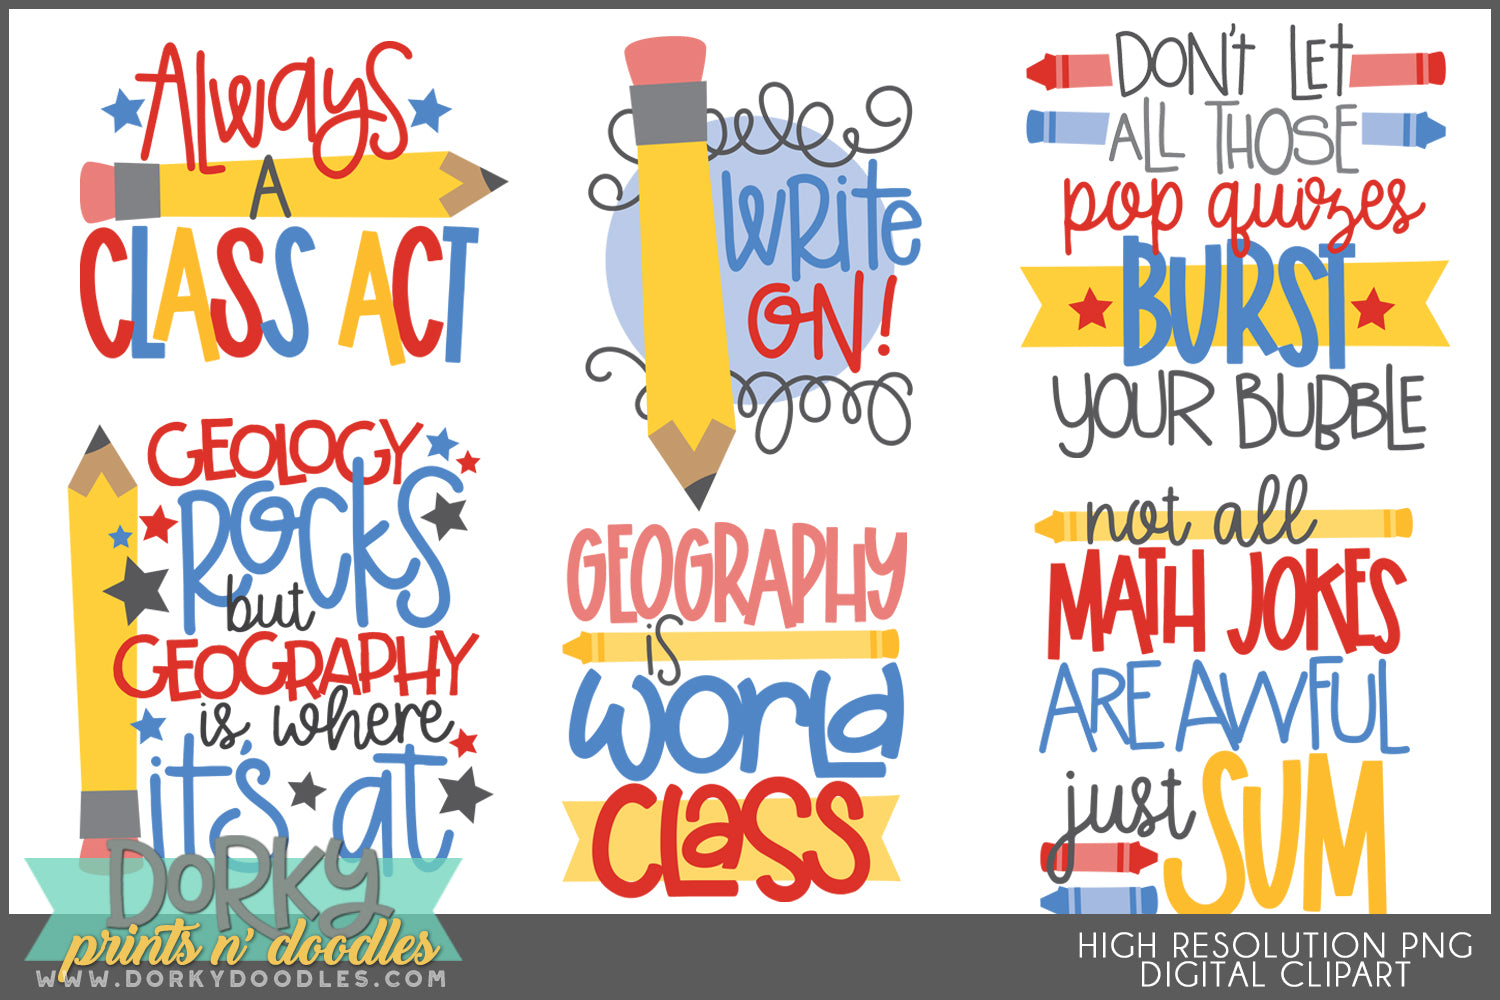 Always
A
CLASS ACT
WRite
ON!
DON't LEt
ALL THOSE
pop quizes
BURST
YOUR BUBBLE
GEOLOGY
ROCKS
but
GEOGRAPHY
is where
it's at
GEOGRAPHY
is
WORLD
CLASS
not all
MATH JOKES
ARE AWFUL
just SUM
DORKY
prints n' doodles
WWW.DORKYDOODLES.COM
HIGH RESOLUTION PNG
DIGITAL CLIPART